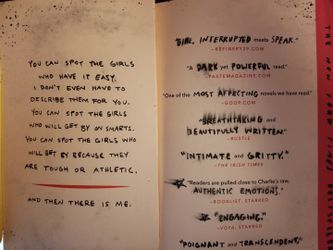 YOU CAN SPOT THE GIRLS
WHO HAVE IT EASY.
I DON'T EVEN HAVE TO
DESCRIBE THEM FOR YOU.
YOU CAN SPOT THE GIRLS
WHO WILL GET BY ON SMARTS.
YOU CAN SPOT THE GIRLS WHO
WILL GET BY BECAUSE THEY
ARE TOUGH OR ATHLETIC.
AND THEN THERE IS ME.
"GIRL, INTERRUPTED meets SPEAK."
-REFINERY29.COM
"A DARK yet POWERFUL read."
-PASTEMAGAZINE.COM
"One of the MOST AFFECTING novels we have read."
-GOOP.COM
"BREATHTAKING and
BEAUTIFULLY WRITTEN."
-BUSTLE
"INTIMATE and GRITTY."
-THE IRISH TIMES
"Readers are pulled close to Charlie's raw,
AUTHENTIC EMOTIONS."
-BOOKLIST, STARRED
"ENGAGING."
-VOYA, STARRED
"POIGNANT and TRANSCENDENT,